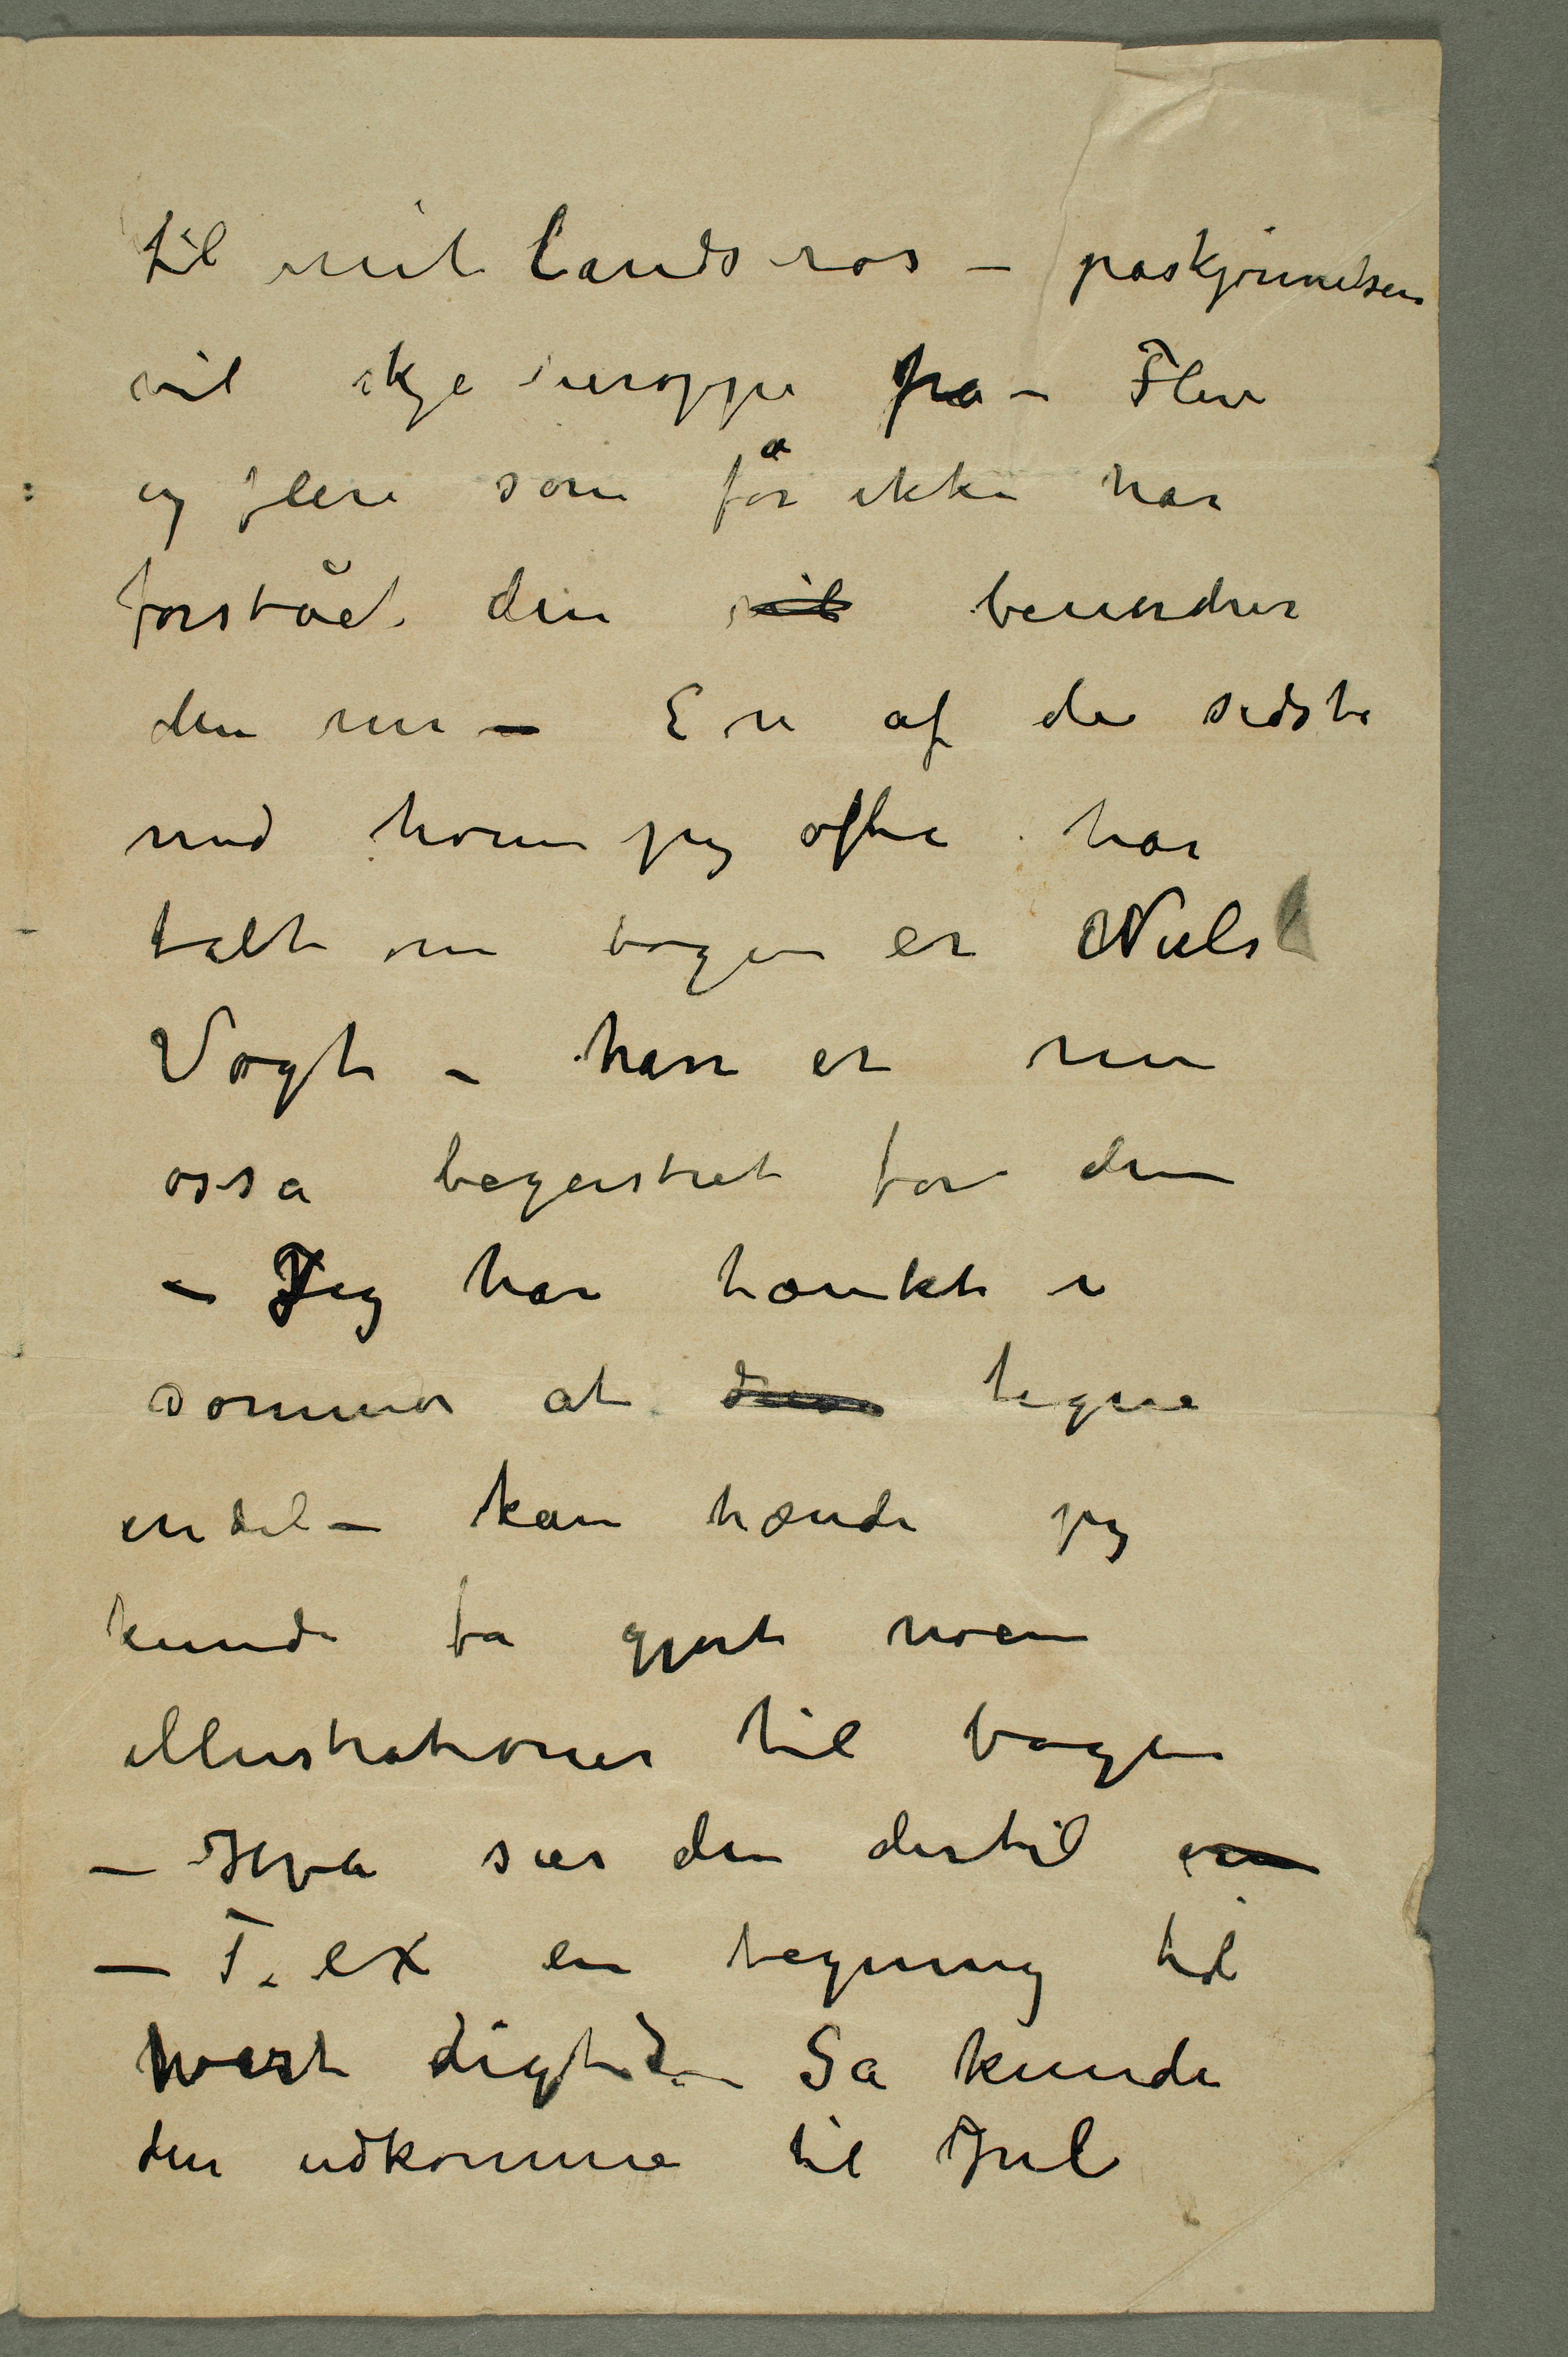 til mit lands ros – påskjønnelsen
vil skje deroppe fra – Flere
og flere som før ikke har
forstået den vil beundrer
den nu – En af de sidste
med hvem jeg ofte har
talt om bogen er Niels
Vogt – han er nu
osså begeistret for den
– Jeg har tænkt i
sommer at tegne
endel – kan hænde jeg
kunde få gjort noen
illustrationer til bogen
– Hva sier du dertil
– T. ex en tegning til
hvert digt? – Så kunde
den udkomme til Jul